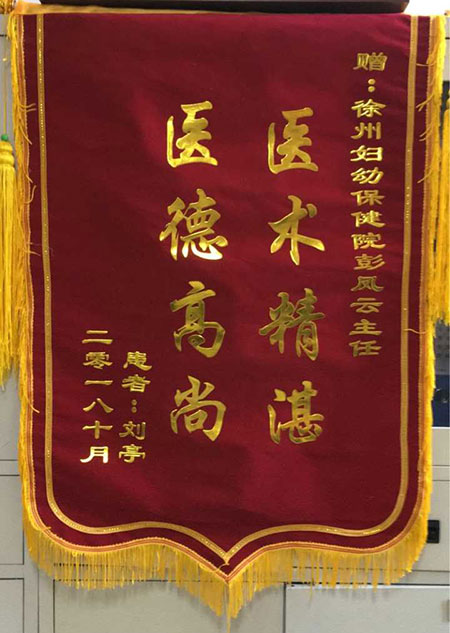 赠：徐州妇幼保健院彭风云主任
医术精湛
医德高尚
患者：刘亭
二零一八十月